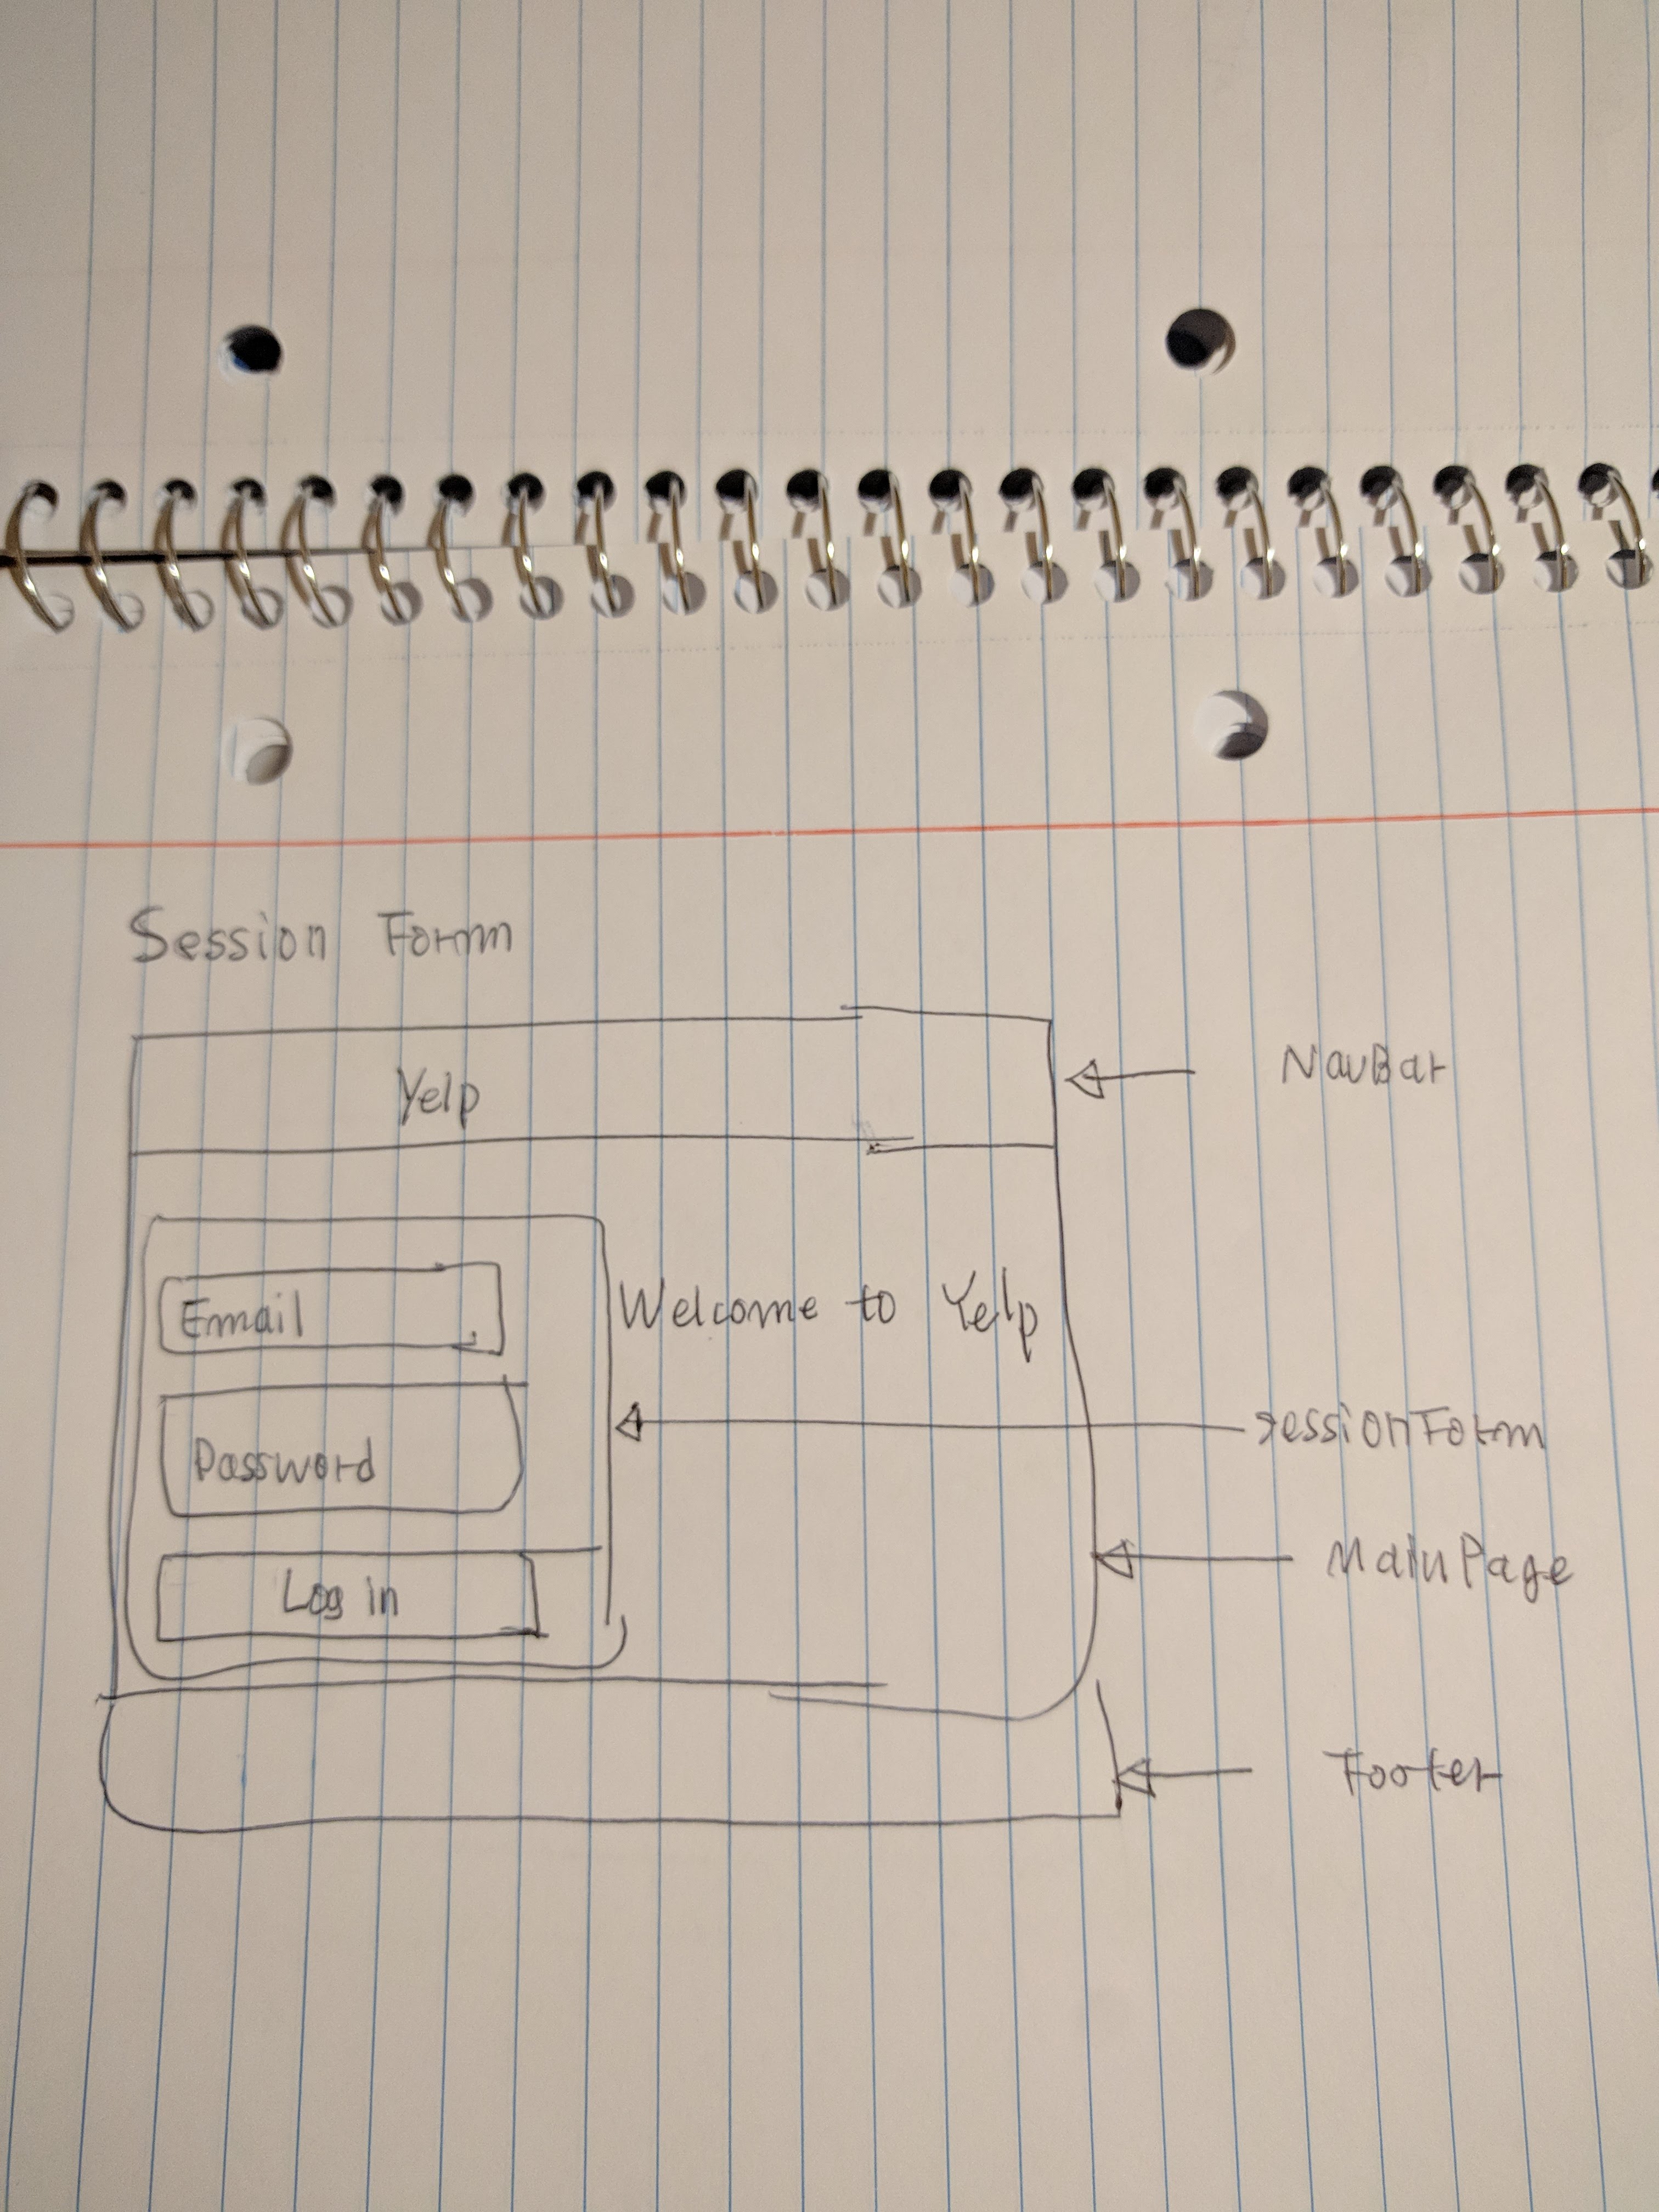 Session Form
Yelp
NavBar
Email
Welcome to Yelp
Password
sessionForm
Log in
MainPage
Footer